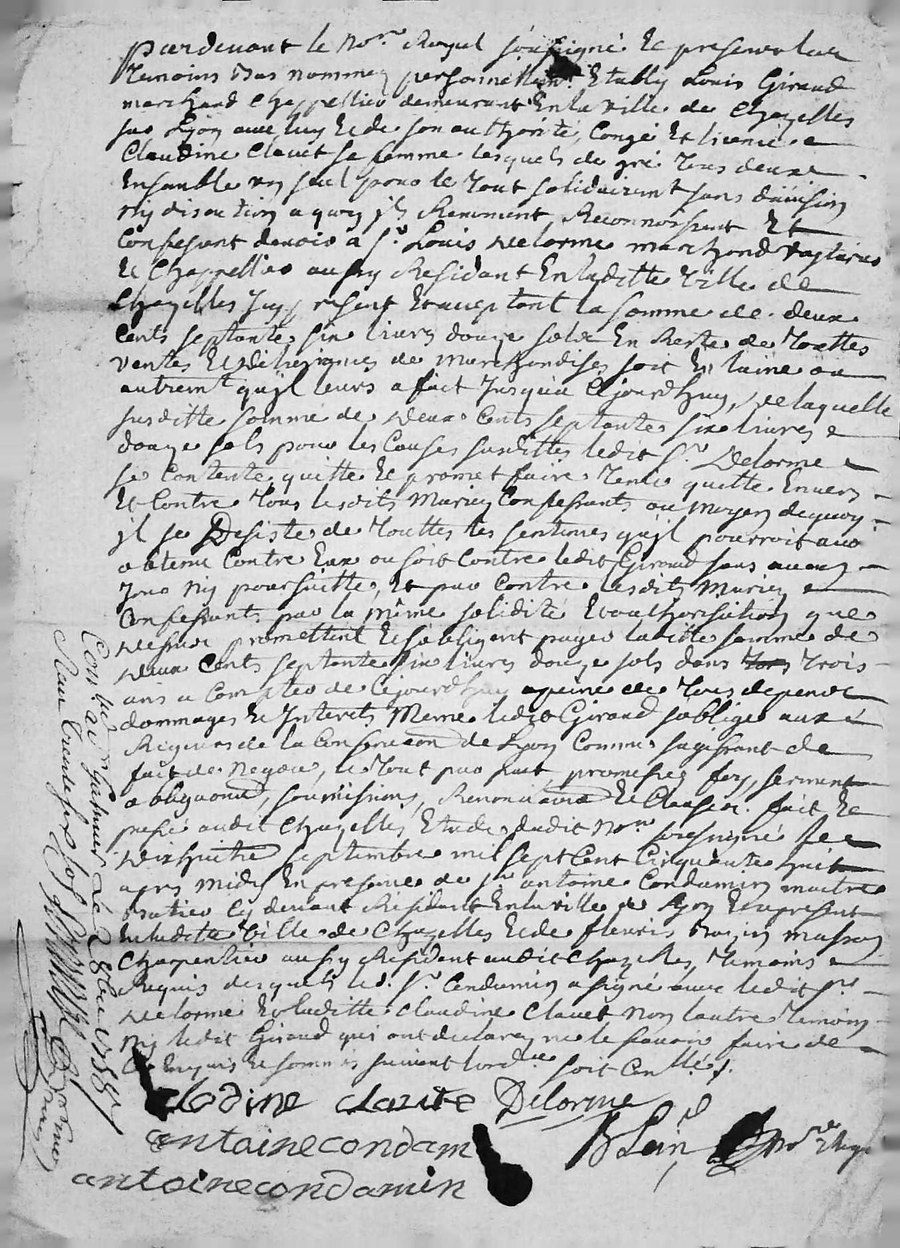 pardevant le No.re Royal soussigné Et presents les
Temoins bas nommez personnellem.t Etably Louis Giraud
marchand Chappellier demeurant En la ville de Chazelles
sur Lyon avec luy Et de son authorité, Congé Et licence
Claudine Clavet sa femme lesquels de gré Tous deux
Ensemble un seul pour le Tout solidairem.t sans division
ny discution a quoy ils Renoncent, Reconnoissent Et
Confessent devoir a S.r Louis Delorme marchand
Et Chappellier aussy Residant En laditte Ville de
Chazelles Icy present Et acceptant la somme de deux
Cents septante six livres douze sols En Reste de Touttes
ventes Et delivrances de marchandises soit En laine ou
autrem.t qu'il leurs a fait Jusqu'a Cejourd'huy, De laquelle
susditte somme de Deux Cents septante six livres
douze sols pour les Causes susdittes ledit S.r Delorme
se Contente, quitte Et promet faire Tenir quitte Envers
Et Contre Tous lesdits Mariez Confessants au moyen dequoy
il se Desiste de Touttes les sentences qu'il pourroit avoir
obtenu Contre Eux ou soit Contre ledit Giraud sans aucun
ny poursuitte, Et par Contre lesdits Mariez
Confessants par la même solidité Et authorisation que
Dessus promettent Et s'obligent payer laditte somme de
Deux Cents septante six livres douze sols dans Trois
ans a Compter de Cejourd'huy a peine de Tous depens
dommages Et Interets Meme ledit Giraud s'oblige aux
Rigueurs de la Conservaon de Lyon Comme s'agissant de
fait de Negoce, Le Tout par fait, promesses, foy, serment
obligaons, soumissions, Renonciaons Et Clauses. fait Et
passé audit Chazelles, Etude dudit No.re soussigné le
Dixhuitre septembre mil sept Cent Cinquante huit
apres midy En presence de S.r antoine Condamin maitre
Cy devant Residant En la ville de Lyon Et a present
En laditte Ville de Chazelles Et de fleuris
Charpentier aussy Residant audit Chazelles, Temoins
Requis desquels le d. S.r Condamin a signé avec ledit S.r
Delorme Et laditte Claudine Clavet Non lautre Temoin
Ny ledit Giraud qui ont declarez ne le sçavoir faire de
Ce Enquis Et sommés suivant lord.ce soit Con.llé.
clodine clavite Delorme
antoine condam
antoine condamin
No.re Royal
Con.llé a S.t Galmier le 28 7bre 1758